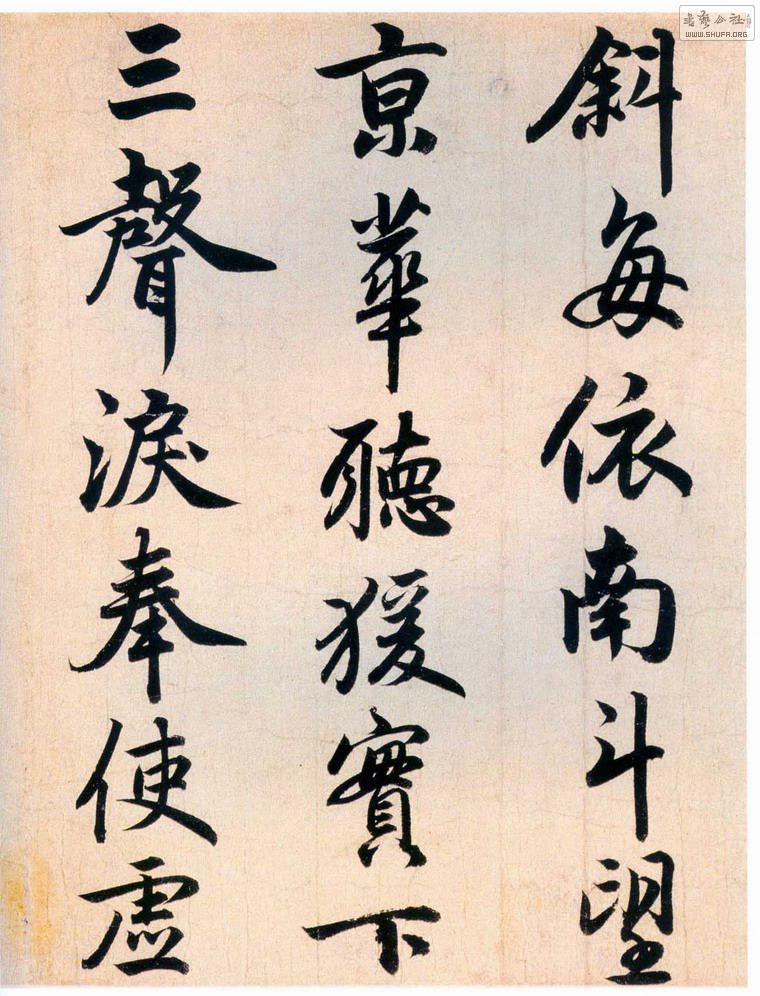 斜每依南斗望
京華聽猨實下
三聲淚奉使虛
WWW.SHUFA.ORG